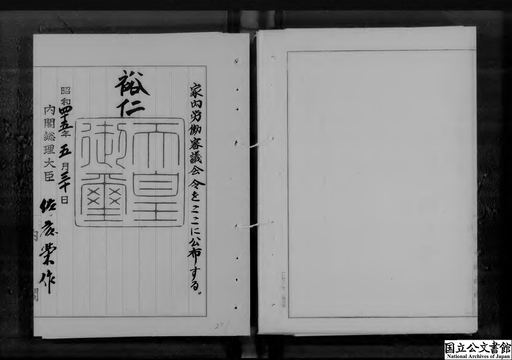 家内労働審議会令をここに公布する。
裕仁
天皇
御璽
昭和四十五年五月三十日
内閣総理大臣 佐藤榮作
内閣
国立公文書館
National Archives of Japan